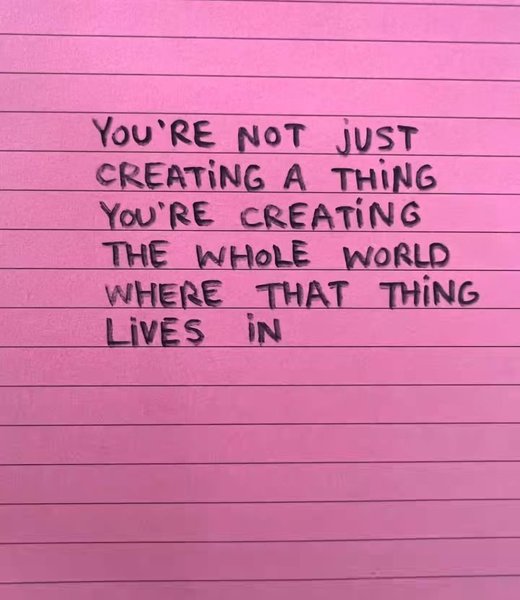 YOU'RE NOT JUST
CREATING A THING
YOU'RE CREATING
THE WHOLE WORLD
WHERE THAT THING
LIVES IN